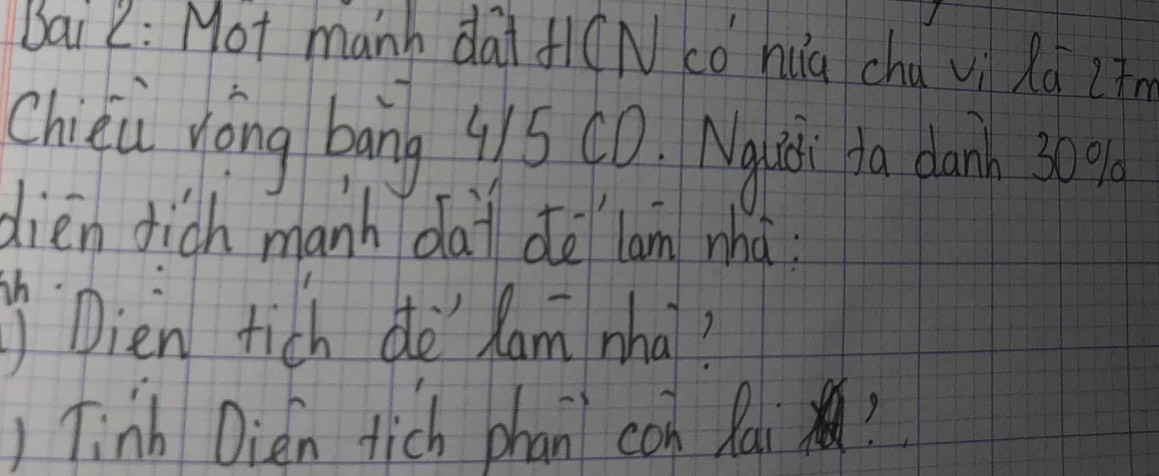 Bài 2: Một mảnh đất HCN có nửa chu vi là 27m
Chiều rộng bằng 4/5 CD. Người ta dành 30%
diện tích mảnh đất để làm nhà:
) Diện tích để làm nhà?
) Tính Diện tích phần còn lại ?